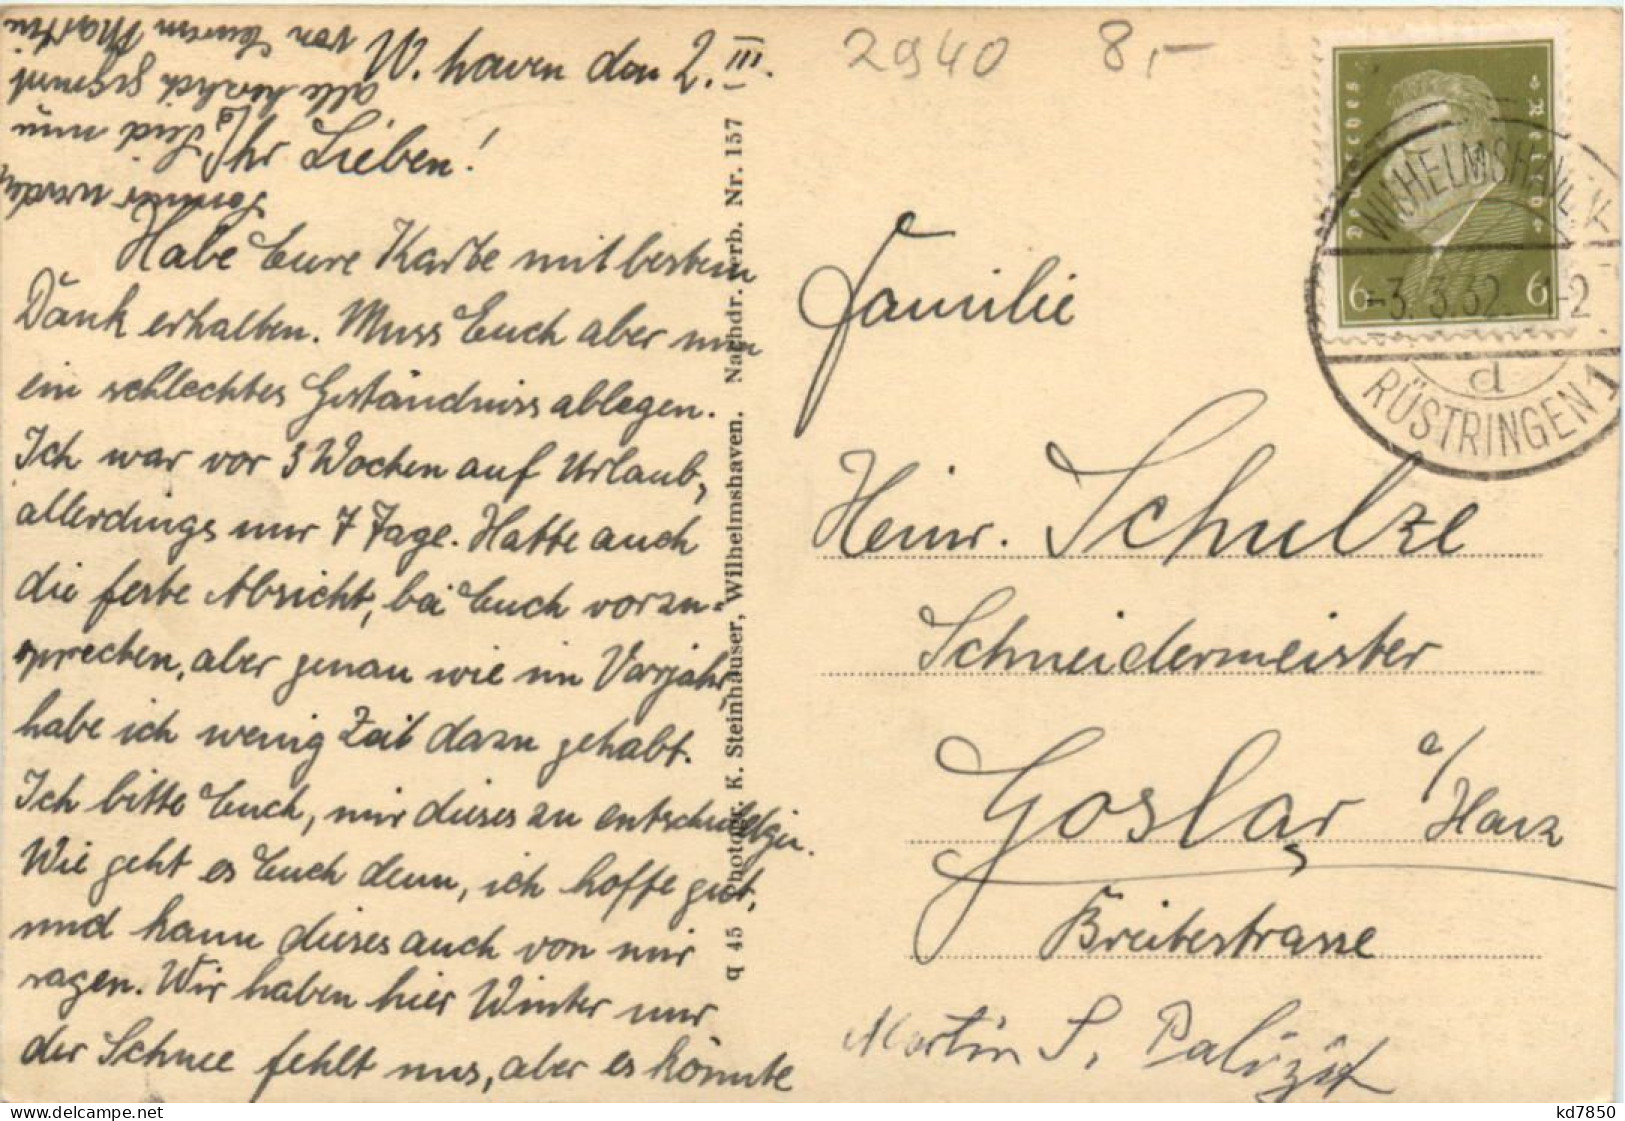 W. haven den 2. III.
Ihr Lieben!
Habe Eure Karte mit bestem
Dank erhalten. Muss Euch aber nun
ein schlechtes Geständniss ablegen.
Ich war vor 3 Wochen auf Urlaub,
allerdings nur 7 Tage. Hatte auch
die feste Absicht, bei Euch vorzu-
sprechen, aber genau wie im Vorjahr
habe ich wenig Zeit dazu gehabt.
Ich bitte Euch, mir dieses zu entschuldigen.
Wie geht es Euch denn, ich hoffe gut,
und kann dieses auch von mir
sagen. Wir haben hier Winter nur
der Schnee fehlt uns, aber es könnte
Sommer werden
Seid nun
alle herzlich gegrüsst
von Eurem Martin
q 45 Photogr. K. Steinhäuser, Wilhelmshaven. Nachdr. verb. Nr. 157
2940 8,-
Deutsches Reich
6 6
WILHELMSHAVEN
-3.3.32. 1-2
d
RÜSTRINGEN 1
Familie
Heinr. Schulze
Schneidermeister
Goslar a/Harz
Breitestrasse
Martin S.
kd7850